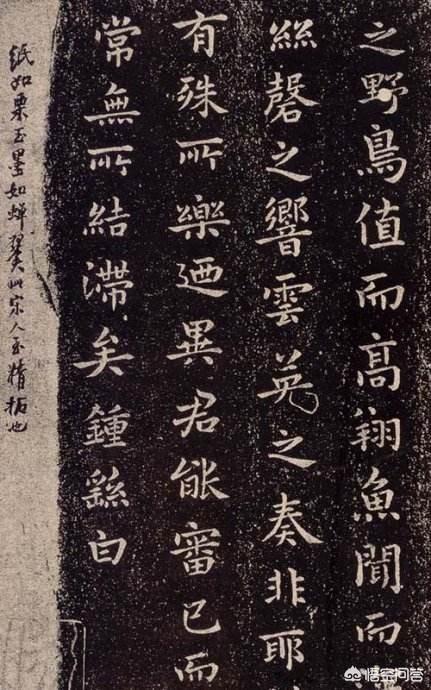 之野鳥值而高翔魚聞而
絲磬之響雲英之奏非耶
有殊所樂廼異君能審已而
常無所結滯矣鍾繇白
紙如栗玉墨如蟬翼此宋人至精拓也
悟空问答